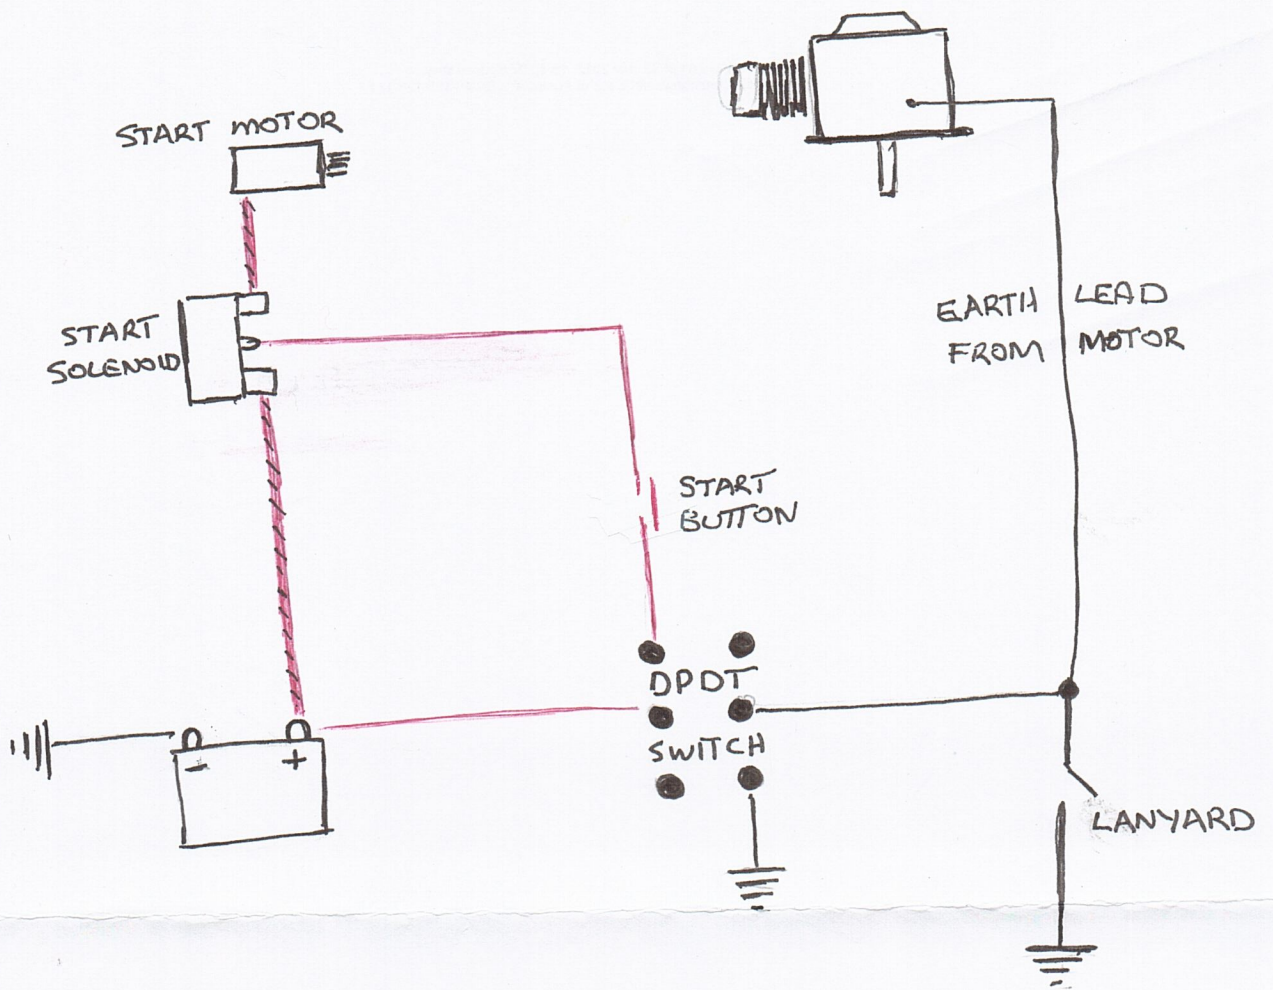 START MOTOR
START
SOLENOID
EARTH LEAD
FROM MOTOR
START
BUTTON
DPDT
SWITCH
- +
LANYARD